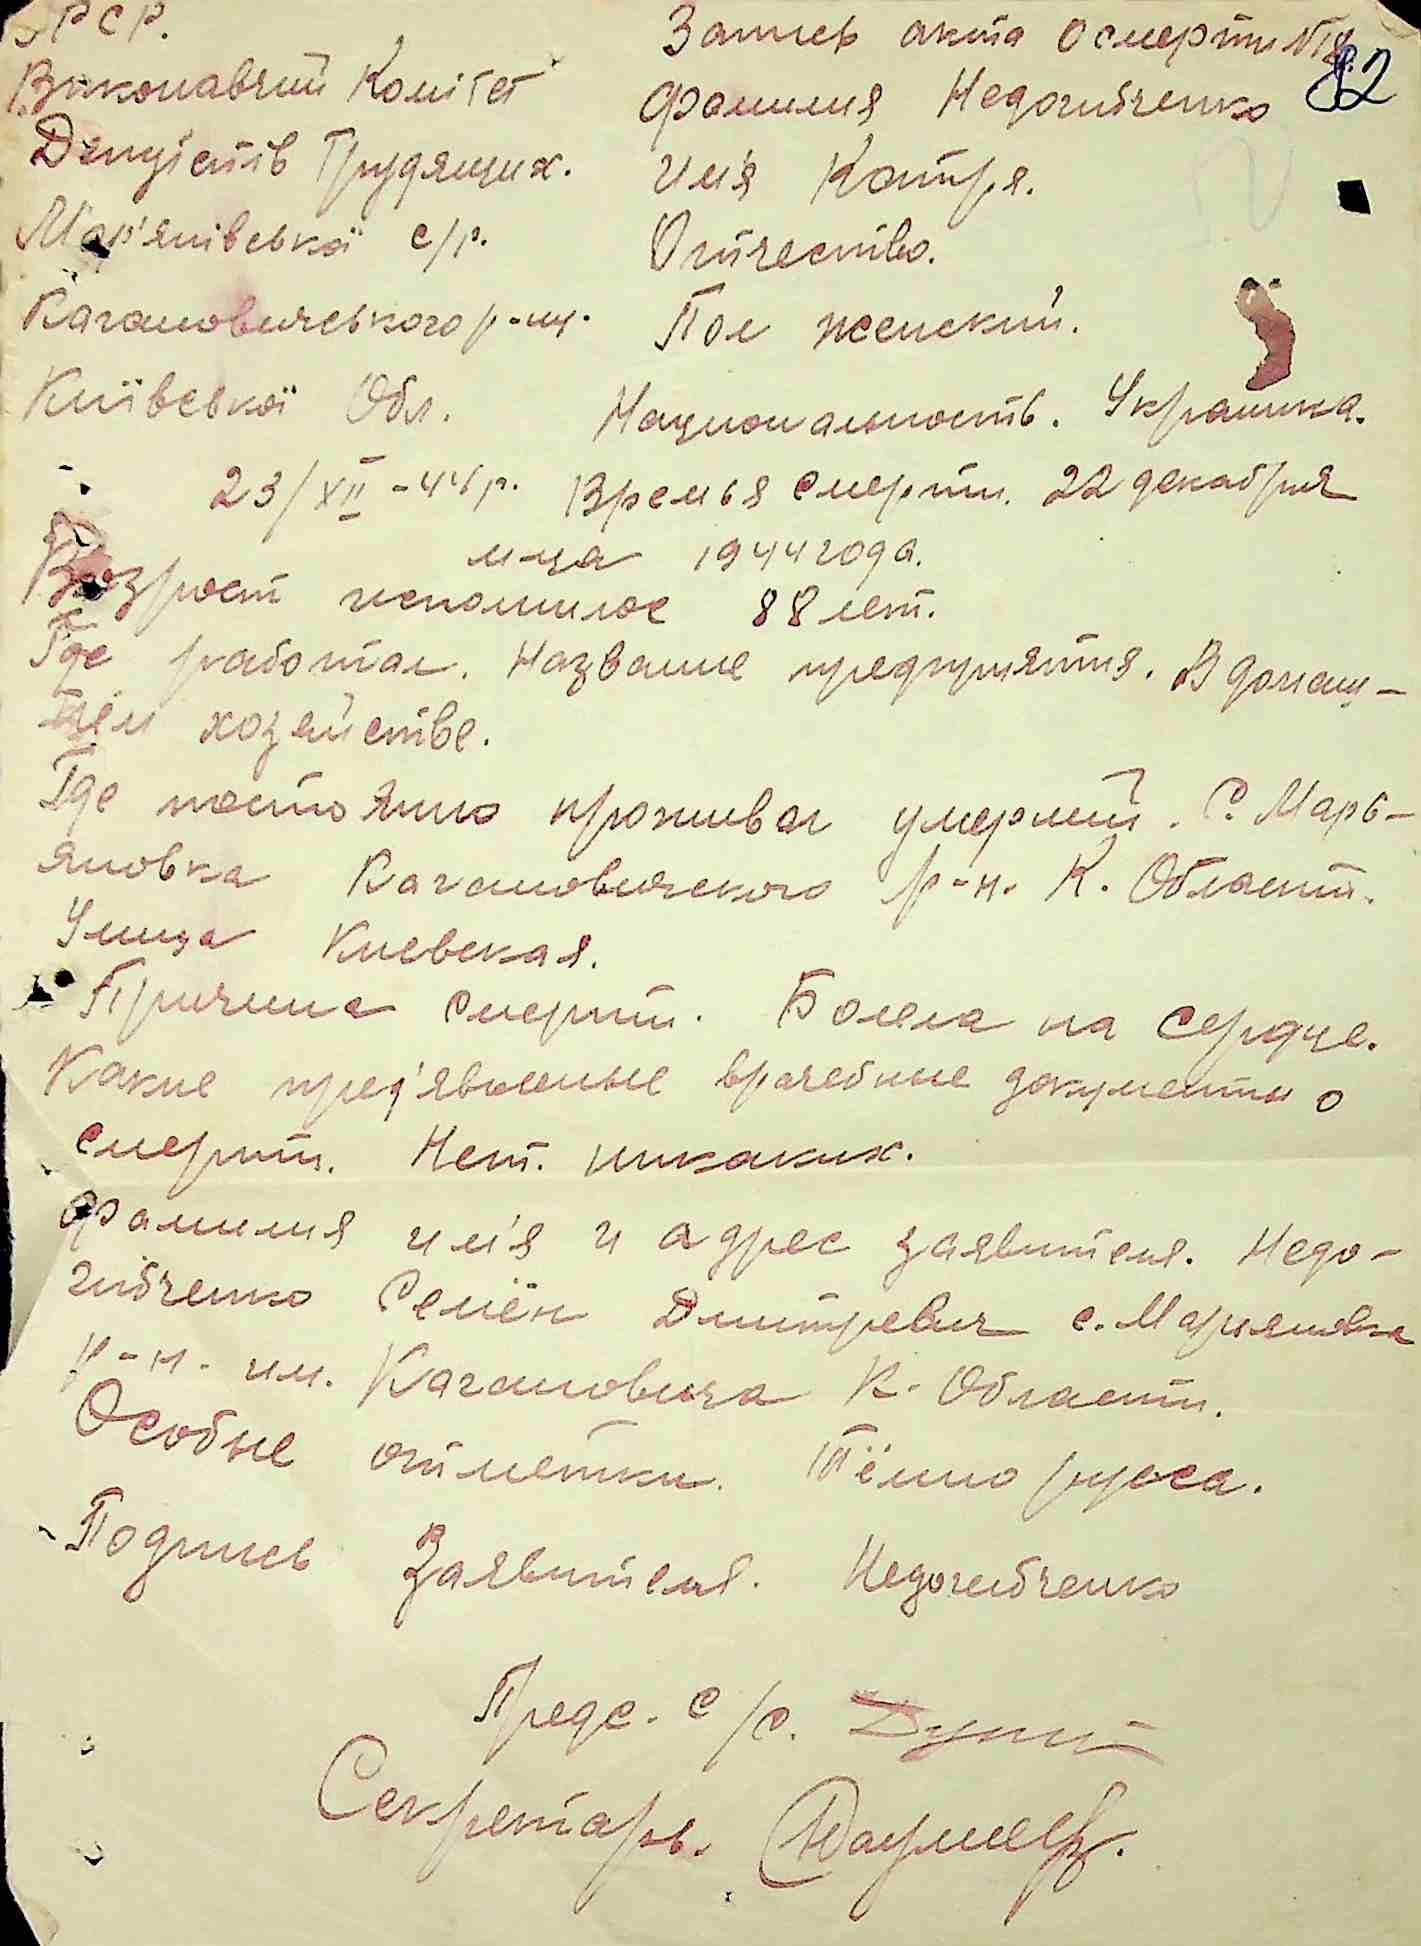 УРСР.
Виконавчий Комітет
Депутатів Трудящих.
Мар'янівської с/р.
Кагановичського р-ну.
Київської Обл.
23/XII-44 р.
Запись акта о смерти №
82
Фамилия Недогибченко
Имя Катря.
Отчество.
Пол женский.
Национальность. Украинка.
Времья смерти. 22 декабря
м-ца 1944 года.
Возрост исполнилос 88 лет.
Где работал. Название предприятия. В домаш-
нем хозяйстве.
Где постоянно проживал умерший. С. Марь-
яновка Кагановического р-н. К. Области.
Улица Киевская.
Причина смерти. Болела на сердце.
Какие пред'явленые врачебные документы о
смерти. Нет. никаких.
Фамилия им'я и адрес заявителя. Недо-
гибченко Семён Дмитревич с. Марьяновка
р-н. им. Кагановича К. Области.
Особые отметки. Тёмно руса.
Подпись Заявителя. Недогибченко
Предс. с/с.
Секретарь.